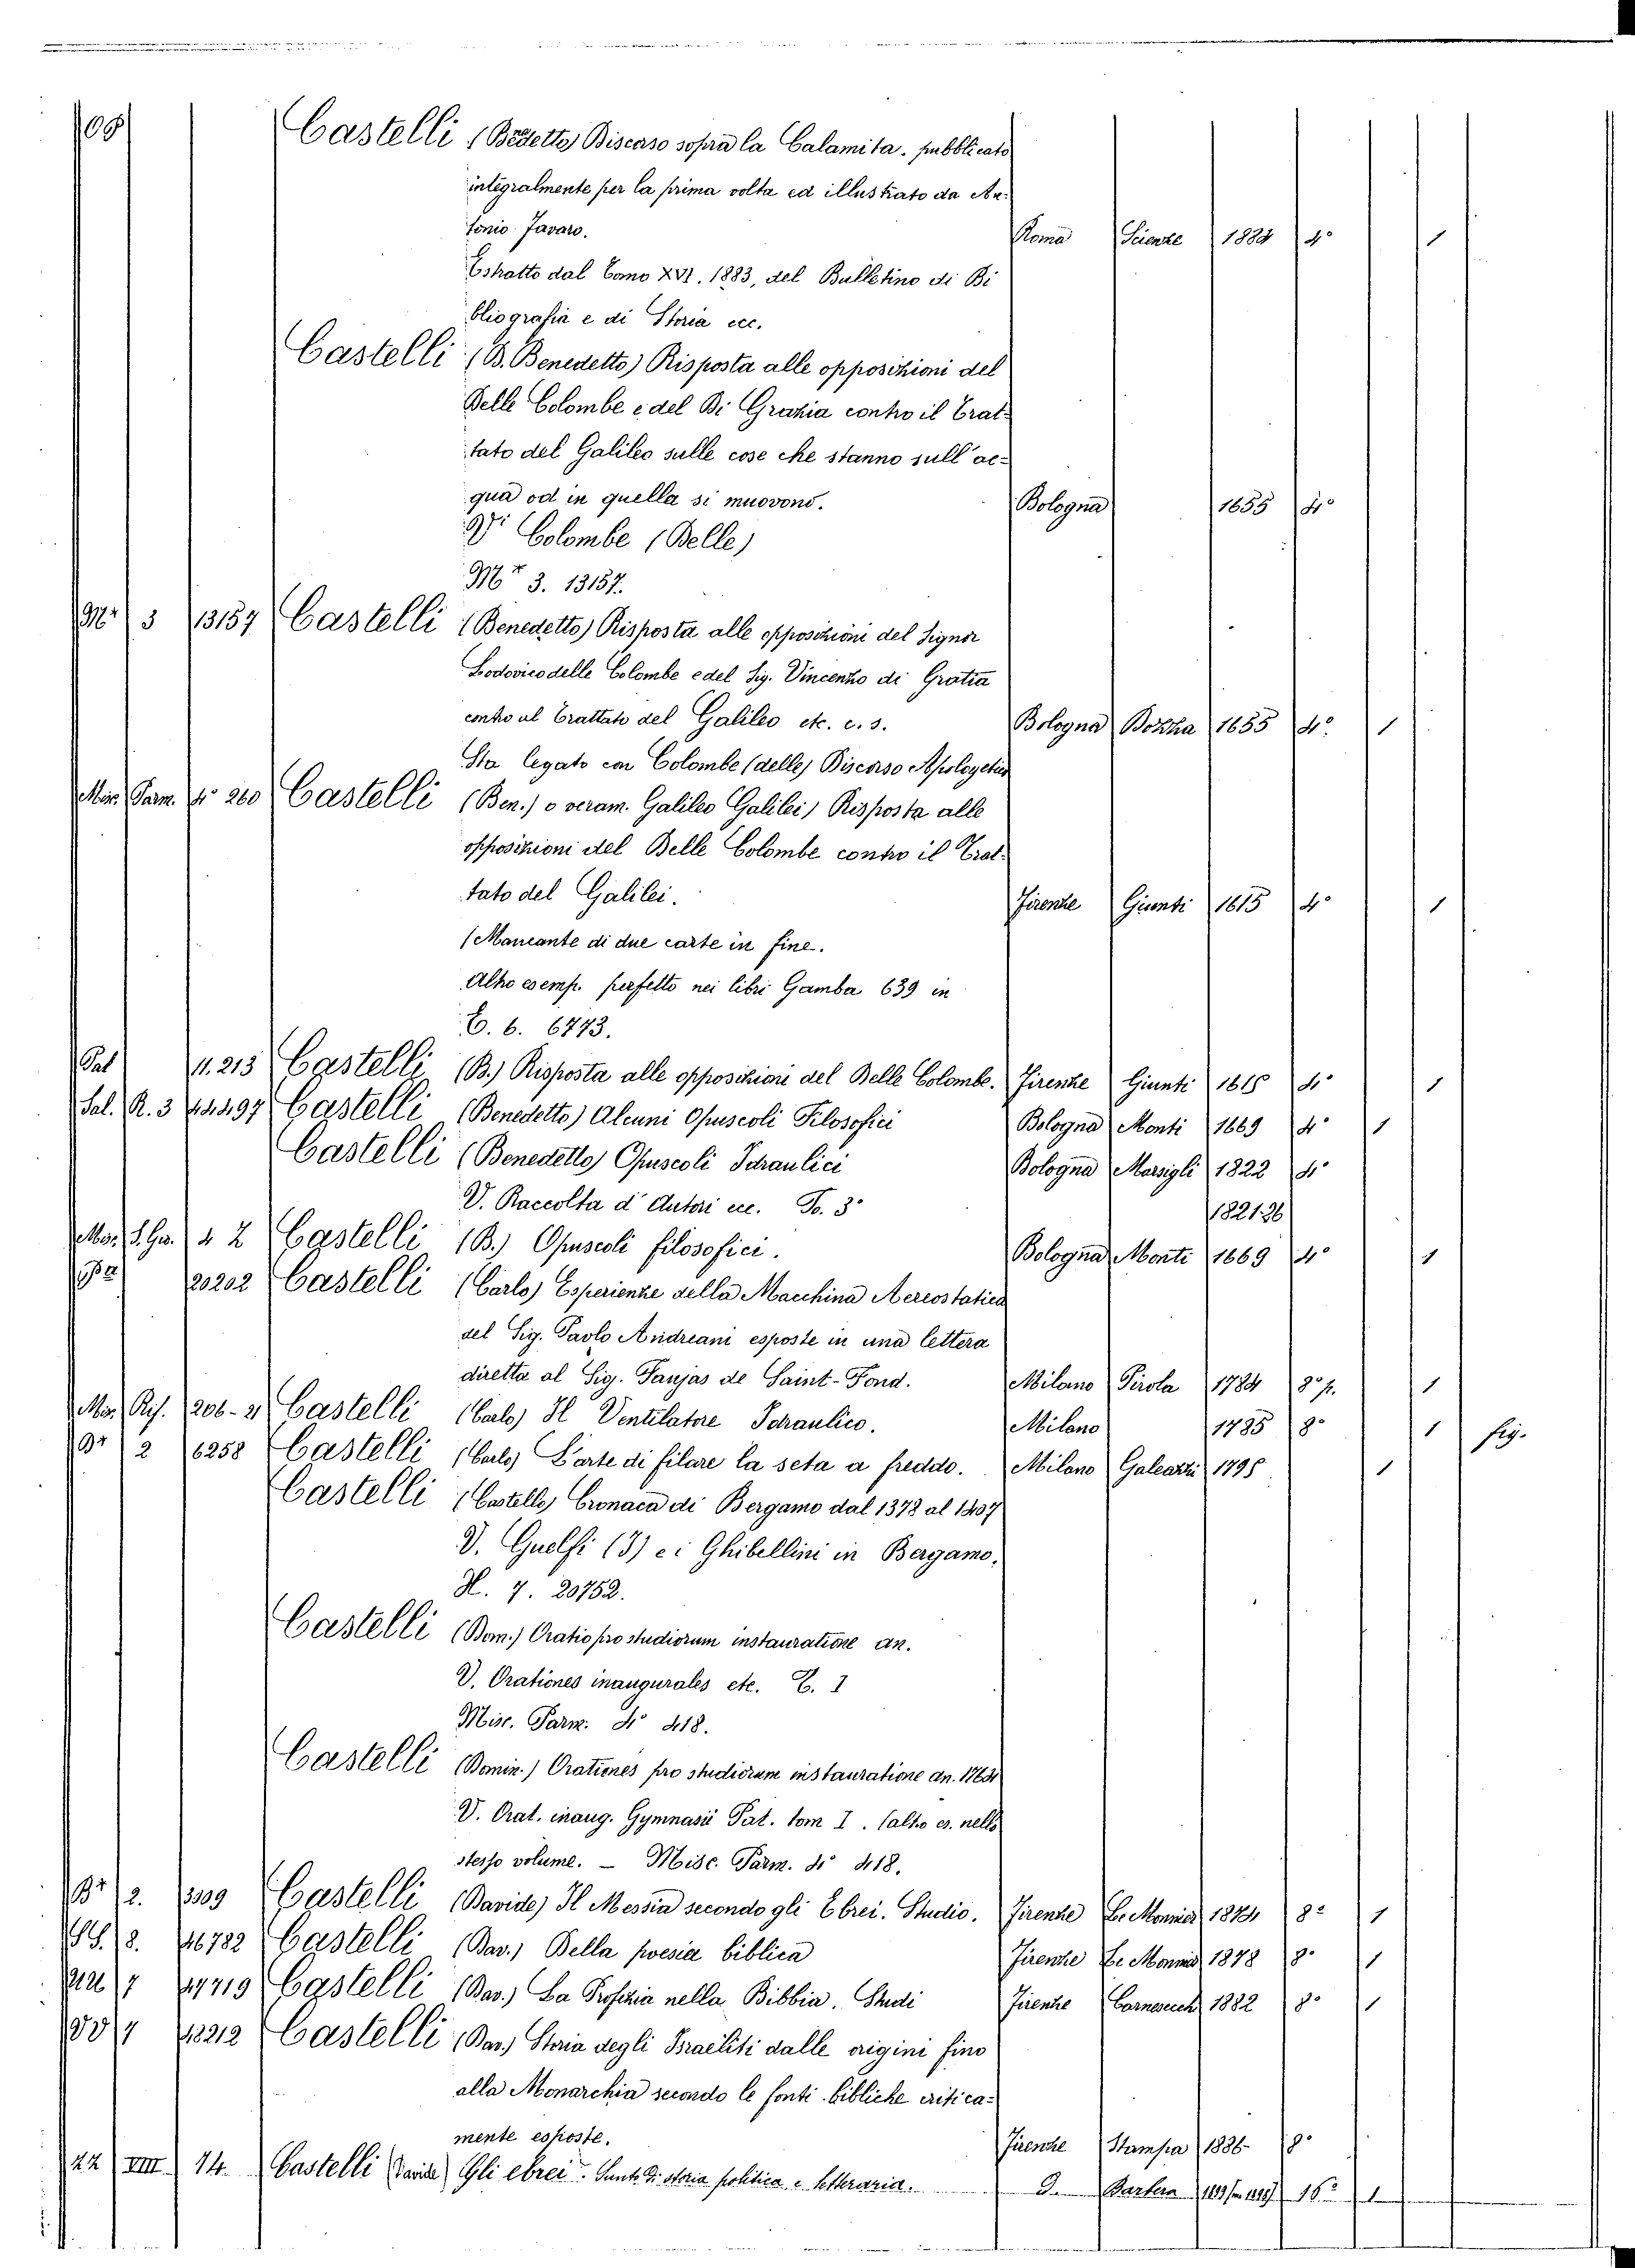 Castelli (Bedetto) Discorso sopra la Calamita. pubblicato
integralmente per la prima volta ed illustrato da An-
tonio Favaro. Roma Scienze 4° 1
Estratto dal Tomo XVI. 1883, del Bulletino di Bi
bliografia e di Storia ecc.
Castelli (D. Benedetto) Risposta alle opposizioni del
Delle Colombe e del Di Grazia contro il Trat-
tato del Galileo sulle cose che stanno sull'ac-
qua od in quella si muovono. Bologna 1655 4°
Vi Colombe (Delle)
3. 13157.
3 13157 Castelli (Benedetto) Risposta alle opposizioni del Signor
Lodovico delle Colombe e del Sig. Vincenzo di Gratia
contro al Trattato del Galileo etc. c. s. Bologna Dozza 1655 4° 1
Sta legato con Colombe (delle) Discorso Apologetico
Misc. Parm. 4° 260 Castelli (Ben.) o veram. Galileo Galilei) Risposta alle
opposizioni del Delle Colombe contro il Trat-
tato del Galilei. Firenze Giunti 1615 4° 1
(Mancante di due carte in fine.
Altro esemp. perfetto nei libri Gamba 639 in
E. 6. 6773.
Pal 11.213 Castelli (B.) Risposta alle opposizioni del Delle Colombe. Firenze Giunti 1615 4° 1
Sal. R. 3 Castelli (Benedetto) Alcuni Opuscoli Filosofici Bologna Monti 1669 4° 1
Castelli (Benedetto) Opuscoli Idraulici Bologna Marsigli 1822 4°
V. Raccolta d'Autori ecc. To. 3° 1821.26
4 2 Castelli (B.) Opuscoli filosofici. Bologna Monti 1669 4° 1
20202 Castelli (Carlo) Esperienze della Macchina Aereostatica
del Sig. Paolo Andreani esposte in una lettera
diretta al Sig. Faujas de Saint-Fond. Milano Pirola 1784 8° p. 1
Misc. Ris. 206-2 Castelli (Carlo) Il Ventilatore Idraulico. Milano 1785 8° 1 fig.
2 6258 Castelli (Carlo) L'arte di filare la seta a freddo. Milano Galeazzi 1795 1
Castelli (Castello) Cronaca di Bergamo dal 1378 al 1407
V. Guelfi (I) e i Ghibellini in Bergamo.
H. 7. 20752.
Castelli (Dom.) Oratio pro studiorum instauratione an.
V. Orationes inaugurales etc. T. I
Misc. Parm. 4° 418.
Castelli (Domin.) Orationes pro studiorum instauratione an.
V. Orat. inaug. Gymnasii Pat. tom I. (altro es. nello
stesso volume. — Misc. Parm. 4° 418.
2. Castelli (Davide) Il Messia secondo gli Ebrei. Studio. Firenze Le Monnier 1874 8° 1
8. 16782 Castelli (Dav.) Della poesia biblica Firenze Le Monnier 1878 8° 1
7 Castelli (Dav.) La Profezia nella Bibbia. Studi Firenze Carnesecchi 1882 8° 1
7 Castelli (Dav.) Storia degli Israeliti dalle origini fino
alla Monarchia secondo le fonti bibliche critica-
mente esposte. Firenze Stampa 8°
22 VIII 14. Castelli (Davide) Gli ebrei. Sunto di storia politica e letteraria. D. Barbera 16° 1